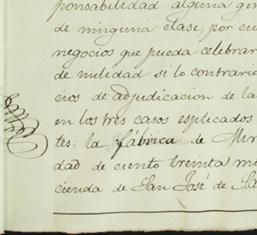 ponsabilidad alguna gen
de ninguna clase, por cu
negocios que pueda celebrar
de nulidad si lo contrari
cios de adjudicacion de la
en los tres casos esplicados
tes: la fábrica de Mir
dad de ciento treinta mi
cienda de San José de Sa